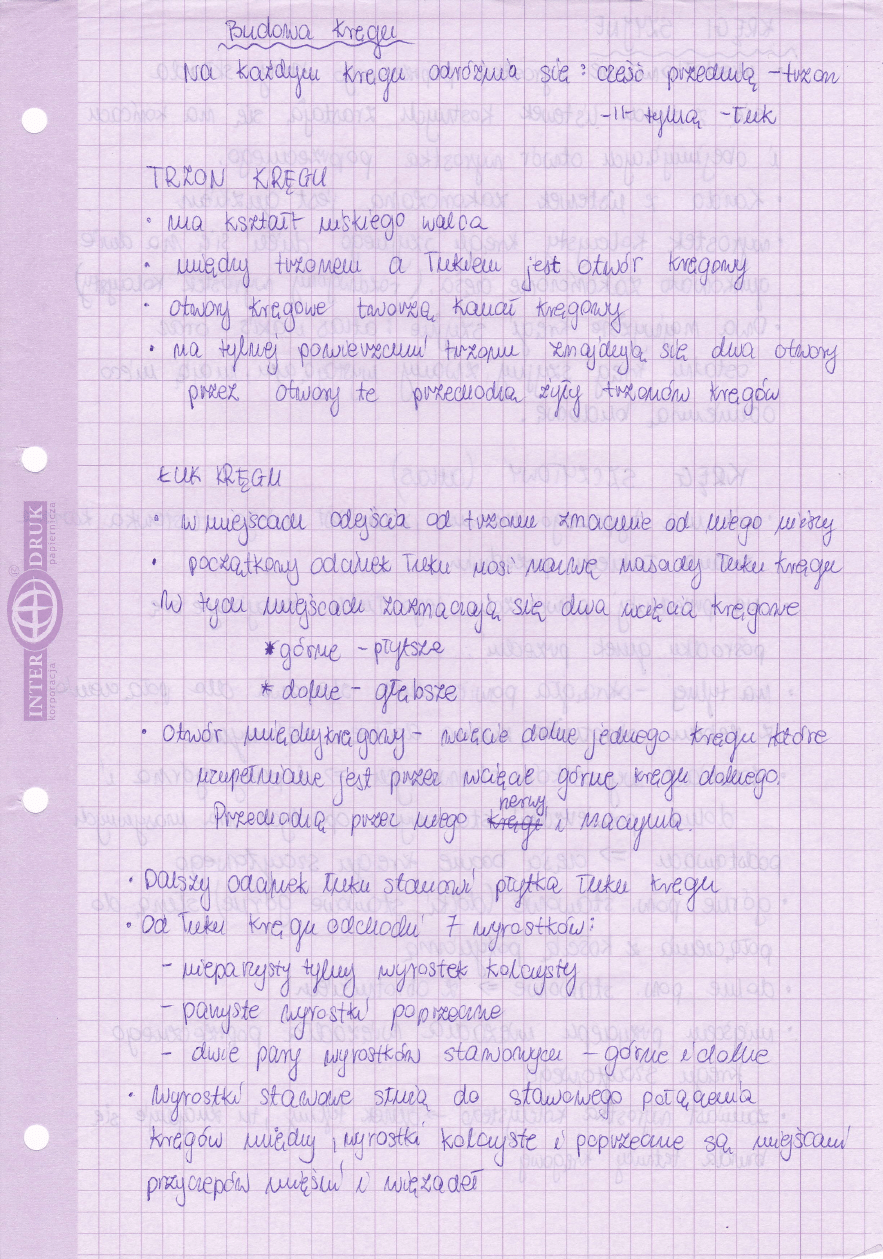 Budowa kręgu
Na każdym kręgu odróżnia się: cześć przednią – trzon
–||– tylną – łuk
TRZON KRĘGU
• ma kształt niskiego walca
• między trzonem a łukiem jest otwór kręgowy
• otwory kręgowe tworzą kanał kręgowy
• na tylnej powierzchni trzonu znajdują się dwa otwory
przez otwory te przechodzą żyły trzonów kręgów
ŁUK KRĘGU
• w miejscach odejścia od trzonu znacznie od niego niższy
• początkowy odcinek łuku nosi nazwę nasady łuku kręgu
W tych miejscach zaznaczają się dwa wcięcia kręgowe
* górne – płytsze
* dolne – głębsze
• Otwór międzykręgowy – wcięcie dolne jednego kręgu które
uzupełniane jest przez wcięcie górne kręgu dolnego.
Przechodzą przez niego kręgi nerwy i naczynia.
• Dalszy odcinek łuku stanowi płytka łuku kręgu
• Od łuku kręgu odchodzi 7 wyrostków:
– nieparzysty tylny wyrostek kolczysty
– parzyste wyrostki poprzeczne
– dwie pary wyrostków stawowych – górne i dolne
• Wyrostki stawowe służą do stawowego połączenia
kręgów między, wyrostki kolczyste i poprzeczne są miejscami
przyczepów mięśni i więzadeł
INTER DRUK
korporacja papiernicza
®